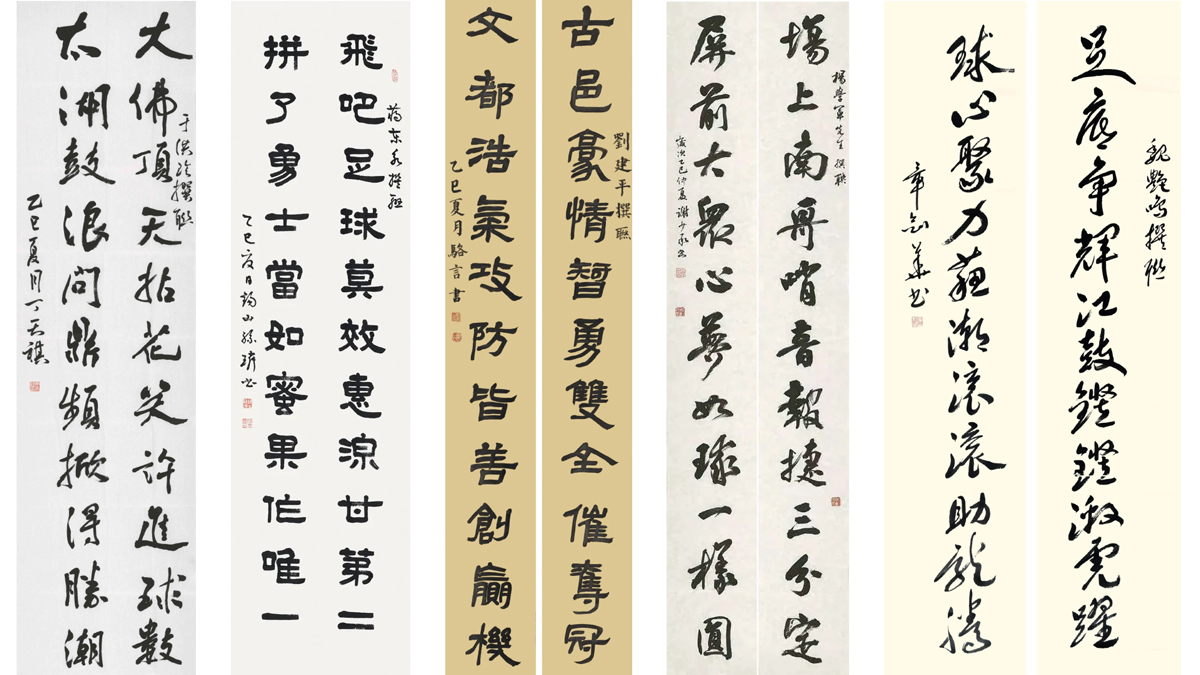 大佛頂天拈花笑許進球数
于洪玲撰聯
太湖鼓浪问鼎頻掀得勝潮
乙巳夏月丁天祺
飛吧足球莫效惠湶甘第二
蒋东永撰聯
拼了勇士當如蜜果作唯一
乙巳夏日
古邑豪情智勇雙全催奪冠
劉建平撰聯
文都浩氣攻防皆善創贏機
乙巳夏月駱言書
場上南哥哨音報捷三分定
楊學軍先生撰聯
屏前大眾心夢如球一樣圓
歲次乙巳仲夏謝少承书
足底争輝江鼓鏗鏗激虎躍
魏艷鳴撰聯
球心聚力蘇潮滾滾助龍騰
章剑華书